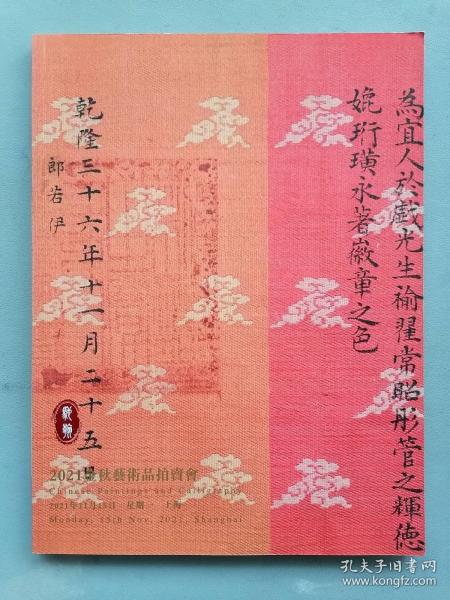 為宜人於戲光生褕翟常昭彤管之輝德
娩珩璜永著徽章之色
乾隆三十六年十一月二十五日
郎若伊
2021金秋藝術品拍賣會
Chinese Paintings and Calligraphy
2021年11月15日 星期 上海
Monday, 15th Nov, 2021, Shanghai
孔夫子旧书网
www.kongfz.com